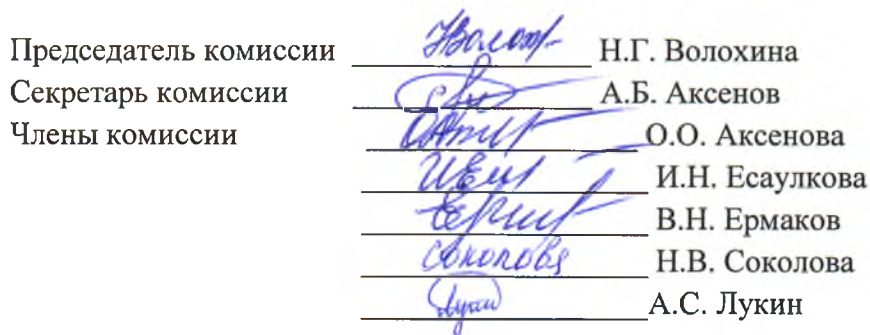 Председатель комиссии Н.Г. Волохина
Секретарь комиссии А.Б. Аксенов
Члены комиссии О.О. Аксенова
И.Н. Есаулкова
В.Н. Ермаков
Соколова Н.В. Соколова
А.С. Лукин